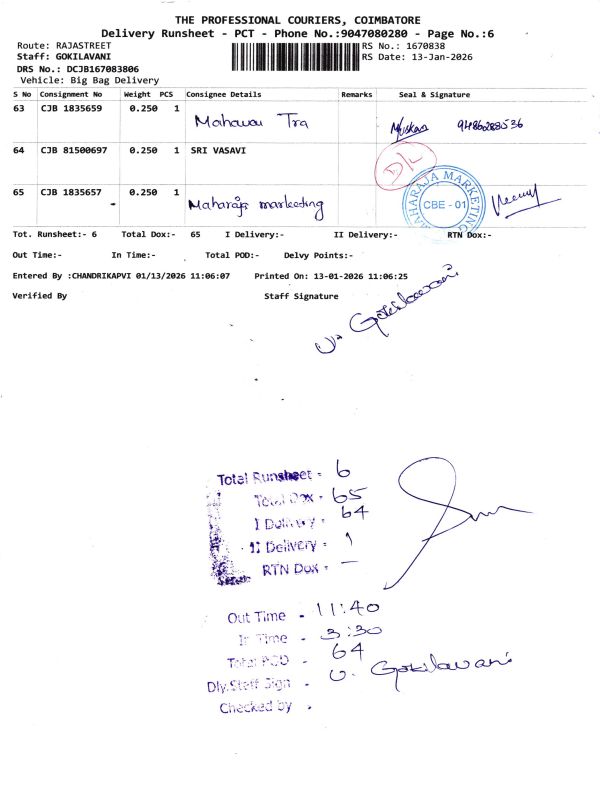 THE PROFESSIONAL COURIERS, COIMBATORE
Delivery Runsheet - PCT - Phone No.:9047080280 - Page No.:6
Route: RAJASTREET RS No.: 1670838
Staff: GOKILAVANI RS Date: 13-Jan-2026
DRS No.: DCJB167083806
Vehicle: Big Bag Delivery
S No Consignment No Weight PCS Consignee Details Remarks Seal & Signature
63 CJB 1835659 0.250 1 Mahavai Tra Muskan 9486288536
64 CJB 81500697 0.250 1 SRI VASAVI D/L
65 CJB 1835657 0.250 1 Maharaja marketing MAHARAJA MARKETING CBE - 01
Tot. Runsheet:- 6 Total Dox:- 65 I Delivery:- II Delivery:- RTN Dox:-
Out Time:- In Time:- Total POD:- Delvy Points:-
Entered By :CHANDRIKAPVI 01/13/2026 11:06:07 Printed On: 13-01-2026 11:06:25
Verified By Staff Signature
V. Gokilavani
Total Runsheet - 6
Total Dox - 65
I Delivery - 64
II Delivery - 1
RTN Dox - —
Out Time - 11:40
In Time - 3:30
Total POD - 64
Dly.Staff Sign - V. Gokilavani
Checked by -